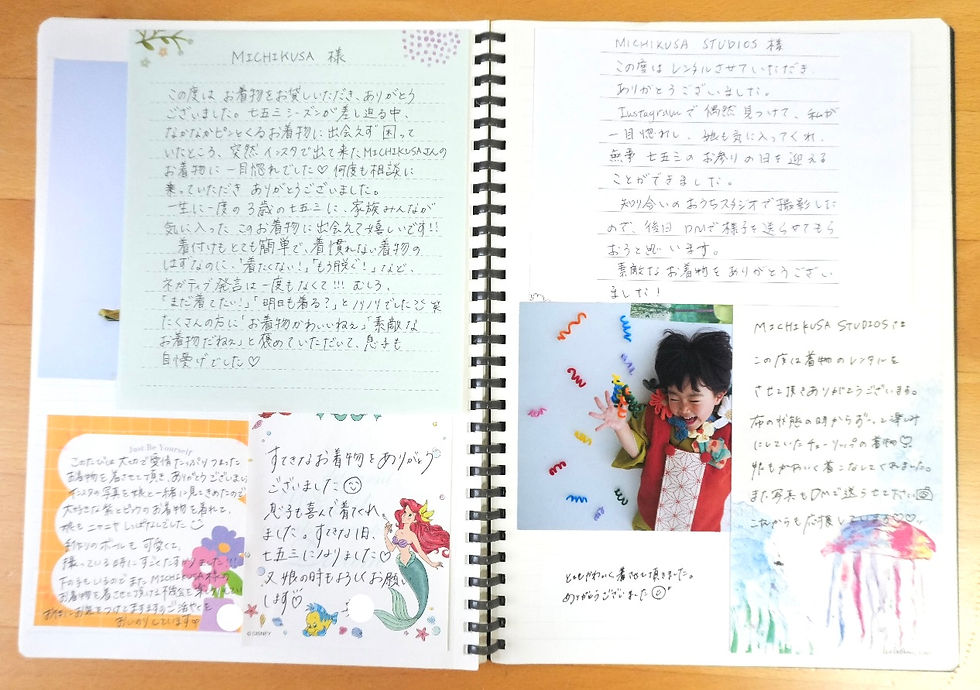 MICHIKUSA 様
この度は お着物をお貸しいただき、ありがとう
ございました。七五三シーズンが差し迫る中、
なかなかピンとくるお着物に出会えず困って
いたところ、突然 インスタで出て来たMICHIKUSAさんの
お着物に一目惚れでした♡ 何度も相談に
乗っていただき ありがとうございました。
一生に一度の3歳の七五三に、家族みんなが
気に入った このお着物に出会えて嬉しいです!!
着付けもとても簡単で、着慣れない着物の
はずなのに、「着たくない!」「もう脱ぐ!」など、
ネガティブ発言は一度もなくて!!! むしろ、
「まだ着てたい!」「明日も着る?」とノリノリでした 笑
たくさんの方に「お着物かわいいねぇ」「素敵な
お着物だねぇ」と褒めていただいて、息子も
自慢げでした♡
Just Be Yourself
このたびは大切で愛情たっぷりつまった
お着物を着させて頂き、ありがとうございました
インスタの写真を娘と一緒に見ときめたので
大好きな紫とピンクのお着物を着れて、
娘もニヤニヤしっぱなしでした
手作りのボールも可愛くて、
すごくたすかりました!!!
下の子もいるのでまたMICHIKUSA様の
お着物を着させて頂ける機会を
おいのりしています♡
すてきなお着物をありがとう
ございました
息子も喜んで着てくれ
ました。すてきな1日、
七五三になりました♡
又、娘の時もよろしくお願い
します
©DISNEY
MICHIKUSA STUDIOS 様
この度は レンタルさせていただき、
ありがとうございました。
Instagramで偶然見つけて、私が
一目惚れし、娘も気に入ってくれ、
無事 七五三のお参りの日を迎える
ことができました。
知り合いのおうちスタジオで撮影した
ので、後日 DMで様子を送らせてもら
おうと思います。
素敵なお着物をありがとうござい
ました!
MICHIKUSA STUDIOSさま
この度は着物のレンタルを
させて頂きありがとうございます。
布の状態の時からずーっと楽しみ
にしていたチューリップの着物♡
娘もかわいく着こなしてくれました。
また写真もDMで送らせて下さい
これからも応援してます♡♡
とてもかわいく着させて頂きました。
ありがとうございました